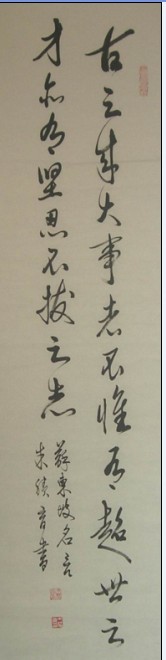 古之成大事者不惟有超世之
才亦有坚忍不拔之志
蘇東坡名言
朱 書